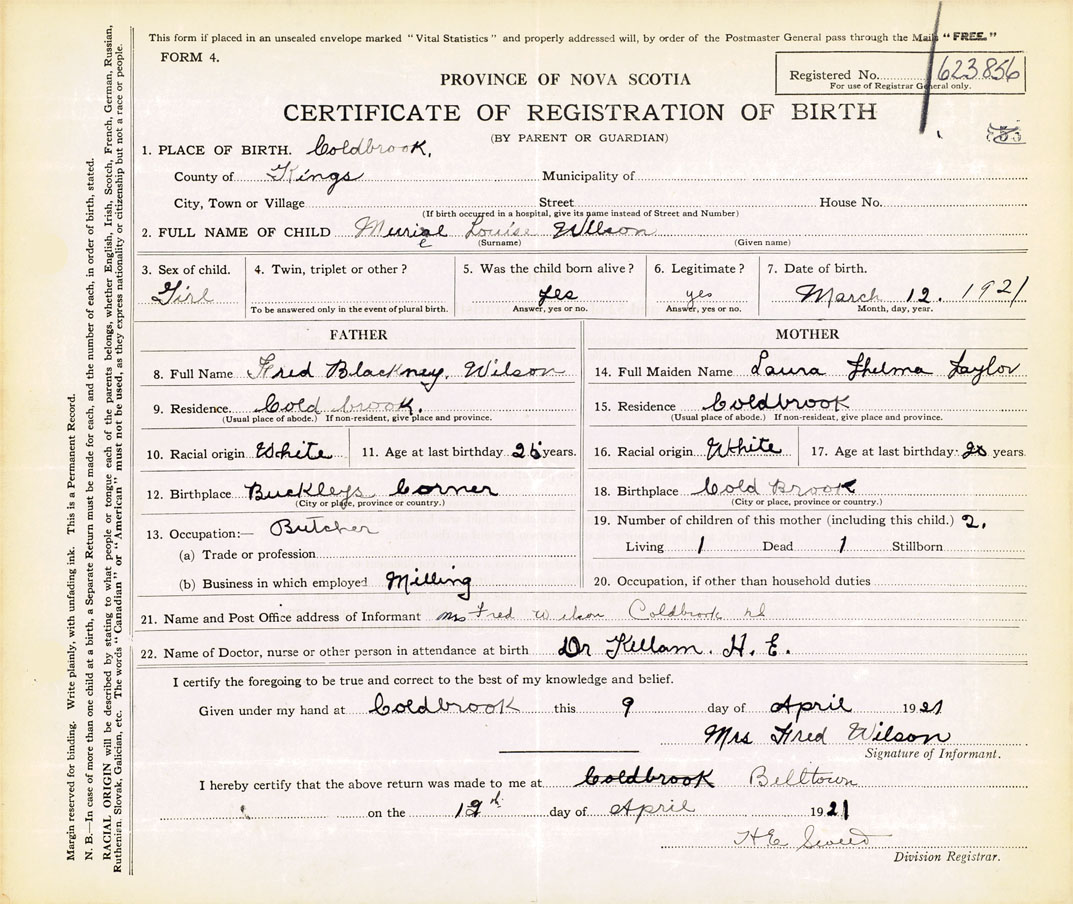 This form if placed in an unsealed envelope marked "Vital Statistics" and properly addressed will, by order of the Postmaster General pass through the Mails "FREE."
FORM 4.
Registered No. 623856
For use of Registrar General only.
PROVINCE OF NOVA SCOTIA
CERTIFICATE OF REGISTRATION OF BIRTH
(BY PARENT OR GUARDIAN)
1. PLACE OF BIRTH. Coldbrook.
County of Kings Municipality of
City, Town or Village Street House No.
(If birth occurred in a hospital, give its name instead of Street and Number)
2. FULL NAME OF CHILD Muriel Louise Wilson
(Surname) (Given name)
3. Sex of child. 4. Twin, triplet or other? 5. Was the child born alive? 6. Legitimate? 7. Date of birth.
Girl yes yes March 12. 1921
To be answered only in the event of plural birth. Answer, yes or no. Answer, yes or no. Month, day, year.
FATHER MOTHER
8. Full Name Fred Blackney. Wilson 14. Full Maiden Name Laura Thelma Taylor
9. Residence Cold brook. 15. Residence Coldbrook
(Usual place of abode.) If non-resident, give place and province. (Usual place of abode.) If non-resident, give place and province.
10. Racial origin White 11. Age at last birthday years. 16. Racial origin White 17. Age at last birthday years.
12. Birthplace Buckleys Corner 18. Birthplace Cold Brook
(City or place, province or country.) (City or place, province or country.)
13. Occupation:— Butcher 19. Number of children of this mother (including this child.) 2.
(a) Trade or profession Living 1 Dead 1 Stillborn
(b) Business in which employed Milling 20. Occupation, if other than household duties
21. Name and Post Office address of Informant Mrs Fred Wilson Coldbrook
22. Name of Doctor, nurse or other person in attendance at birth Dr Kellam. H. E.
I certify the foregoing to be true and correct to the best of my knowledge and belief.
Given under my hand at Coldbrook this 9 day of April 1921
Mrs Fred Wilson
Signature of Informant.
I hereby certify that the above return was made to me at Coldbrook Belltown
on the day of April 1921
H E
Division Registrar.
Margin reserved for binding. Write plainly, with unfading ink. This is a Permanent Record.
N. B.—In case of more than one child at a birth, a Separate Return must be made for each, and the number of each, in order of birth, stated.
RACIAL ORIGIN will be described by stating to what people or tongue each of the parents belongs, whether English, Irish, Scotch, French, German, Russian,
Ruthenien, Slovak, Galician, etc. The words "Canadian" or "American" must not be used, as they express nationality or citizenship but not a race or people.